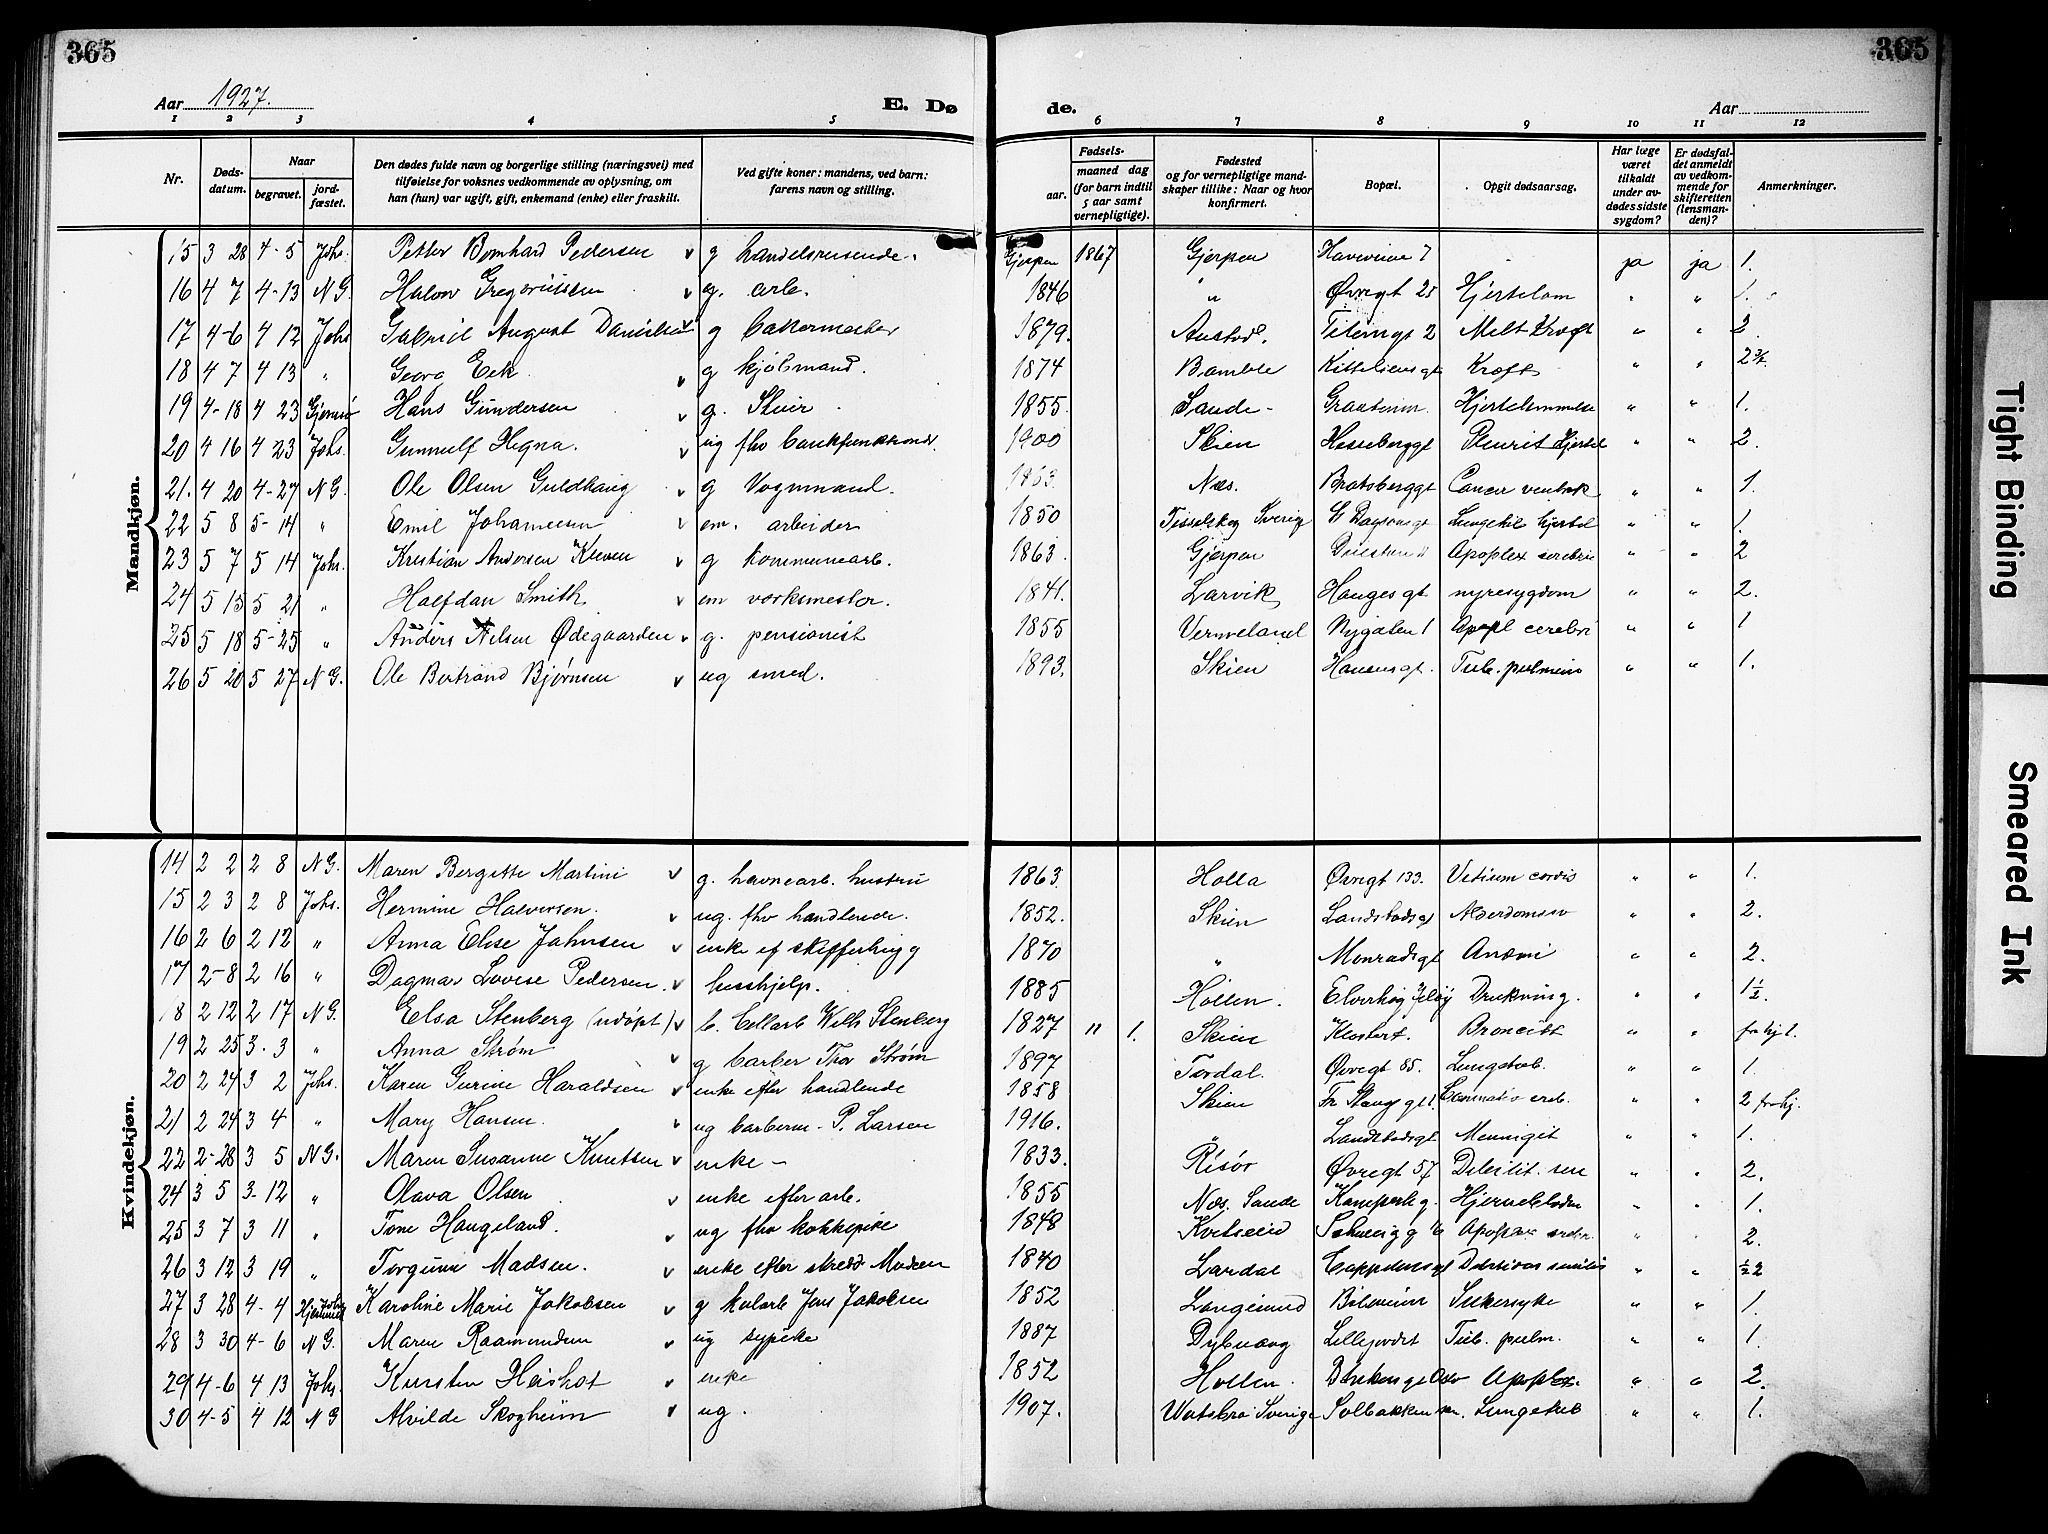 365
365
Aar 1927.
E. Dø
de.
Aar
1 2 3 4 5 6 7 8 9 10 11 12
Nr.
Døds-datum.
Naar
begravet.
jord-fæstet.
Den dødes fulde navn og borgerlige stilling (næringsvei) med tilføielse for voksnes vedkommende av oplysning, om han (hun) var ugift, gift, enkemand (enke) eller fraskilt.
Ved gifte koner: mandens, ved barn: farens navn og stilling.
Fødsels-
aar.
maaned dag (for barn indtil 5 aar samt vernepligtige).
Fødested og for vernepligtige mand-skaper tillike: Naar og hvor konfirmert.
Bopæl.
Opgit dødsaarsag.
Har læge været tilkaldt under av-dødes sidste sygdom?
Er dødsfal-det anmeldt av vedkom-mende for skifteretten (lensman-den)?
Anmerkninger.
Mandkjøn.
15 3 28 4-5 Johs. Petter Bernhard Pedersen v g handelsreisende. Gjerpen 1867 Gjerpen 7 ja ja 1.
16 4 7 4-13 N G. Halvor Gregoriussen v g. arb. 1846 " Øvregt 25 Hjertelam " " 1.
17 4-6 4 12 Johs Gabriel August Danielsen v g bakermester 1879. 2 " " 2
18 4 7 4 13 " Georg Eek v g kjøbmand. 1874 Bamble Kræft " " 2
19 4-18 4 23 Gjemsø Hans Gundersen v g. 1855. Sande - " " 1.
20 4 16 4 23 Johs. Gunnulf Hegna. v ug fhv bankfunktionær. 1900 Skien Hesseberggt Pleurit Hjertef " " 2.
21. 4 20 4-27 N G. Ole Olsen Guldhaug v g Vognmand. 1863. Næs. Bratsberggt Cancer ventrik " " 1.
22 5 8 5-14 " Emil Johannesen v em. arbeider 1850 Tisselskog Sverig Lungebet hjertel " " 1.
23 5 7 5 14 Johs. Kristian Andersen Kleven v g kommunearb. 1863. Gjerpen Apoplex cerebri " " 2
24 5 15 5 21 " Halfdan Smith v em verksmester. 1841. Larvik Hauges gt nyresygdom " " 2.
25 5 18 5-25 " Anders Nilsen Ødegaarden v g. pensionist 1855 Vermeland Nygaten 1 Apopl cerebri " " 1
26 5 20 5 27 N G. Ole Bertrand Bjørnsen v ug smed. 1893. Skien Hansensgt. Tub. pulmon " " 1.
Kvindekjøn.
14 2 2 2 8 N G. Maren Bergitte Martini v g. havnearb. hustru 1863. Holla Øvregt 133. Vitium cordis " " 1.
15 2 3 2 8 Johs. Hermine Halvorsen. v ug. fhv handlende. 1852. Skien Landstadsgt Alderdomssv " " 2.
16 2 6 2 12 " Anna Elise Jahnsen v enke ef 1870 " Monradsgt Anæmi " " 2.
17 2-8 2 16 " Dagmar Lovise Pedersen. v hushjelp. 1885 Hollen. Drukning. " " 1½.
18 2 12 2 17 N G. Elsa Stenberg (udøpt) v b. Cellarb Wilh Stenberg 1827 11 1. Skien Klostert. Broncitt " " frahj 1.
19 2 25 3. 3 " Anna Strøm v g barber Thor Strøm 1897 Tørdal. Øvregt 85. Lungetub. " " 1.
20 2 24 3 2 Johs. Karen Gurine Haraldsen v enke efter handlende 1858 Skien Fr Stangsgt 1. " " 2 frahj.
21 2 24 3 4 " Mary Hansen. v ug barberm - P. Larsen 1916. " Landstadsgt Menigit " " 1.
22 2-28 3 5 N G. Maren Susanne Knutsen v enke - 1833. Risør Øvregt 57 Debilit. sen " " 2.
24 3 5 3-12 " Olava Olsen v enke efter arb. 1855 Næs. Sande Hjerneblødn " " 1.
25 3 7 3 11 " Tone Haugeland. v ug fhv kokkepike 1848 Kviteseid Apoplex cerebr. " " 2.
26 3 12 3 19 " Torgunn Madsen. v enke efter skredd Madsen 1840 Lardal Cappelensgt senilis " " ½2
27 3 28 4-4 Karoline Marie Jakobsen v g kularb Jens Jakobsen 1852 Langesund Sukersyke " " 1.
28 3 30 4-6 N G. Maren Raamundsen v ug sypike 1887 Dybvaag Lillejordet Tub. pulm. " " 1.
29 4-6 4 13 Johs. Kirsten Heisholt v enke 1852 Hollen. Apoplex. " " 2.
30 4-5 4 12 N G Alvilde Skogheim v ug. 1907. Sverige Solbakken Lungetub " " 1.
Tight Binding
Smeared Ink